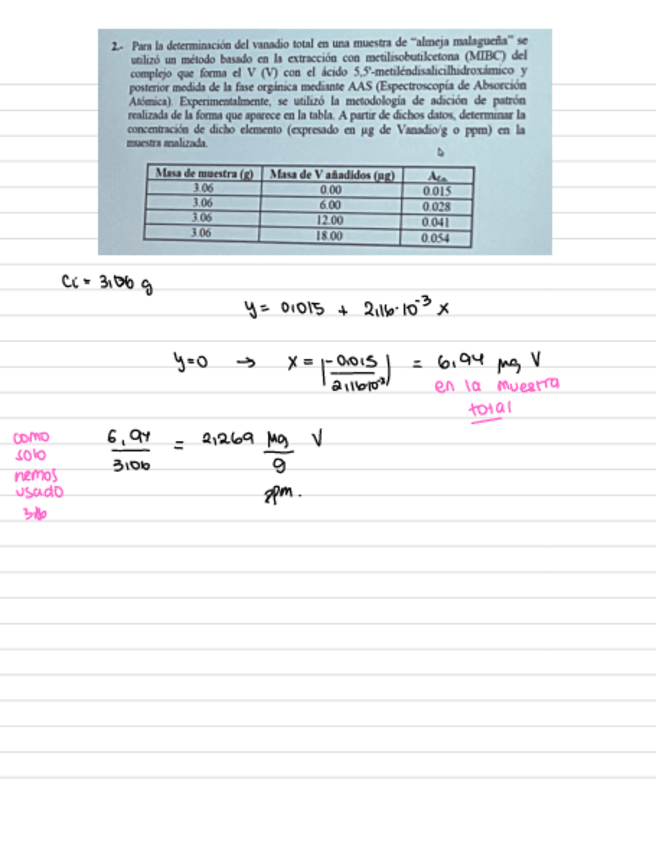 2.- Para la determinación del vanadio total en una muestra de "almeja malagueña" se
utilizó un método basado en la extracción con metilisobutilcetona (MIBC) del
complejo que forma el V (V) con el ácido 5,5'-metiléndisalicilhidroxámico y
posterior medida de la fase orgánica mediante AAS (Espectroscopía de Absorción
Atómica). Experimentalmente, se utilizó la metodología de adición de patrón
realizada de la forma que aparece en la tabla. A partir de dichos datos, determinar la
concentración de dicho elemento (expresado en µg de Vanadio/g o ppm) en la
muestra analizada.
Masa de muestra (g) Masa de V añadidos (µg)
3.06 0.00 0.015
3.06 6.00 0.028
3.06 12.00 0.041
3.06 18.00 0.054
Ci = 3,06 g
y = 0,015 + 2,16·10⁻³ x
y=0 → x = |-0,015 / 2,16·10⁻³| = 6,94 µg V
en la muestra
total
como
solo
hemos
usado
3,06
6,94 / 3,06 = 2,269 µg / g V
ppm.